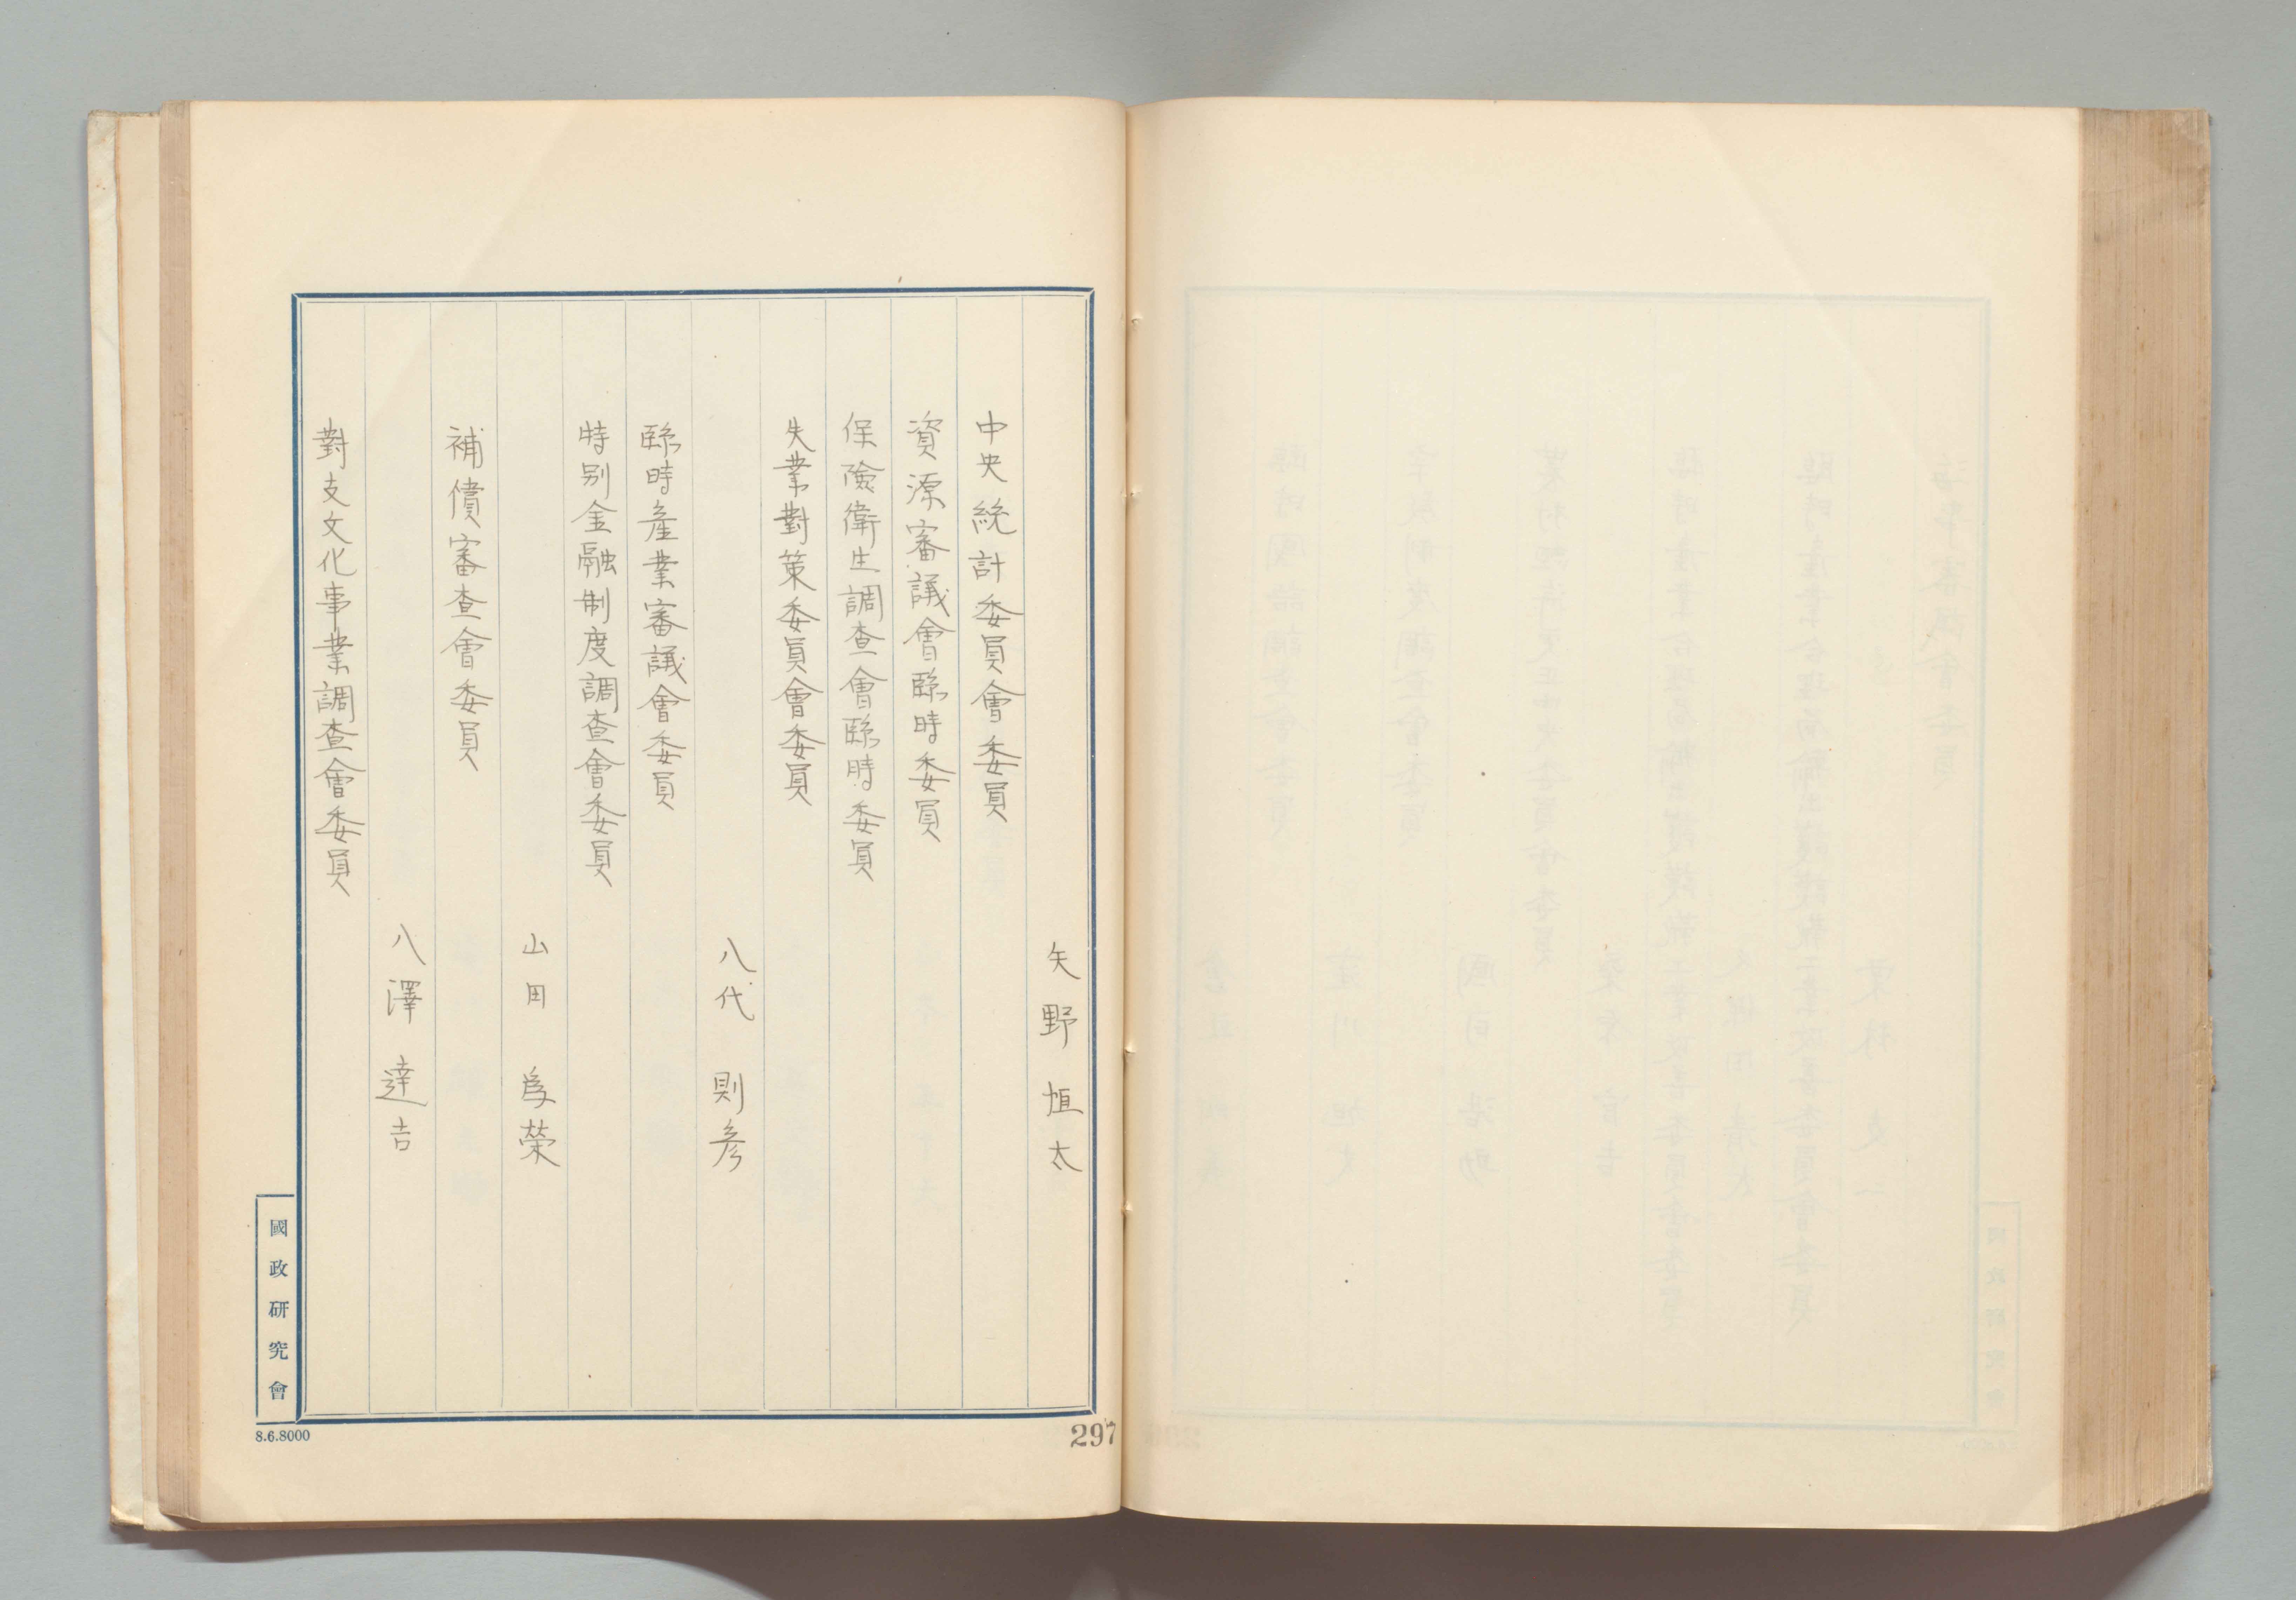 矢野恒太
中央統計委員會委員
資源審議會臨時委員
保險衛生調査會臨時委員
失業對策委員會委員
八代則彦
臨時産業審議會委員
特別金融制度調査會委員
山田爲榮
補償審査會委員
八澤達吉
對支文化事業調査會委員
國政研究會
8.6.8000
297